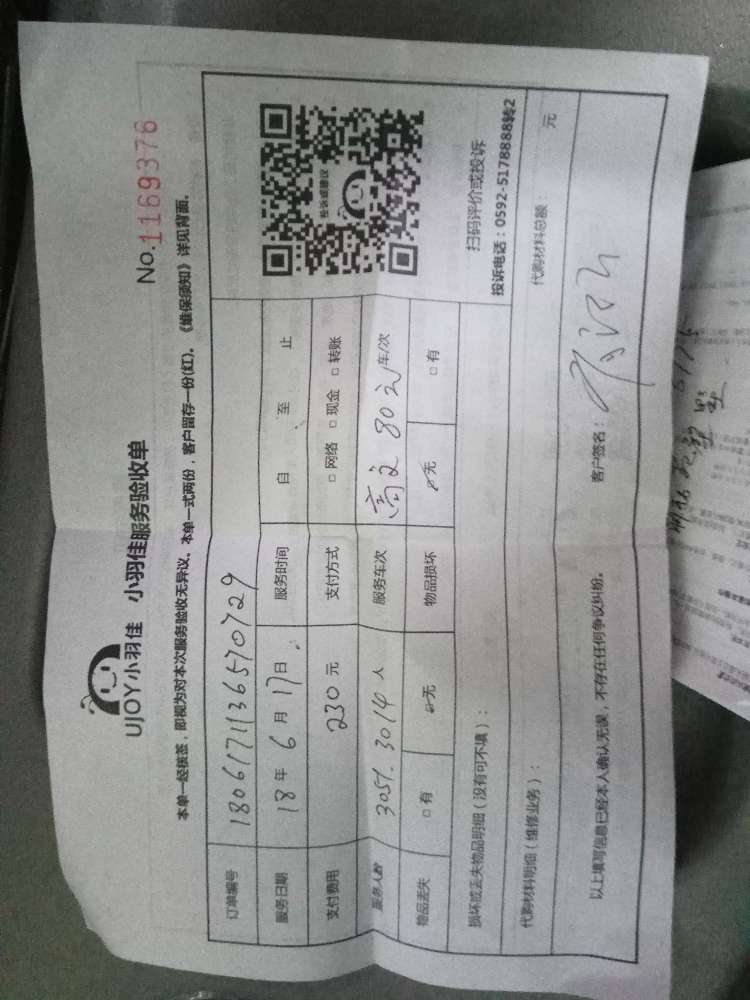 No.1169376
UJOY小羽佳 小羽佳服务验收单
本单一经核签，即视为对本次服务验收无异议。本单一式两份，客户留存一份(红)。《维保须知》详见背面。
订单编号 180617113657​0729
服务日期 18年 6月 17日 服务时间 自 至 止
支付费用 230 元 支付方式 □ 网络 □ 现金 □ 转账
服务人数 3051. 3014 人 服务车次 80 车/次
物品丢失 □ 有 □ 无 物品损坏 □ 无 □ 有
投诉或建议
扫码评价或投诉
投诉电话：0592-5178888转2
损坏或丢失物品明细（没有可不填）：
代购材料明细（维修业务）： 代购材料总额： 元
以上填写信息已经本人确认无误，不存在任何争议纠纷。 客户签名：